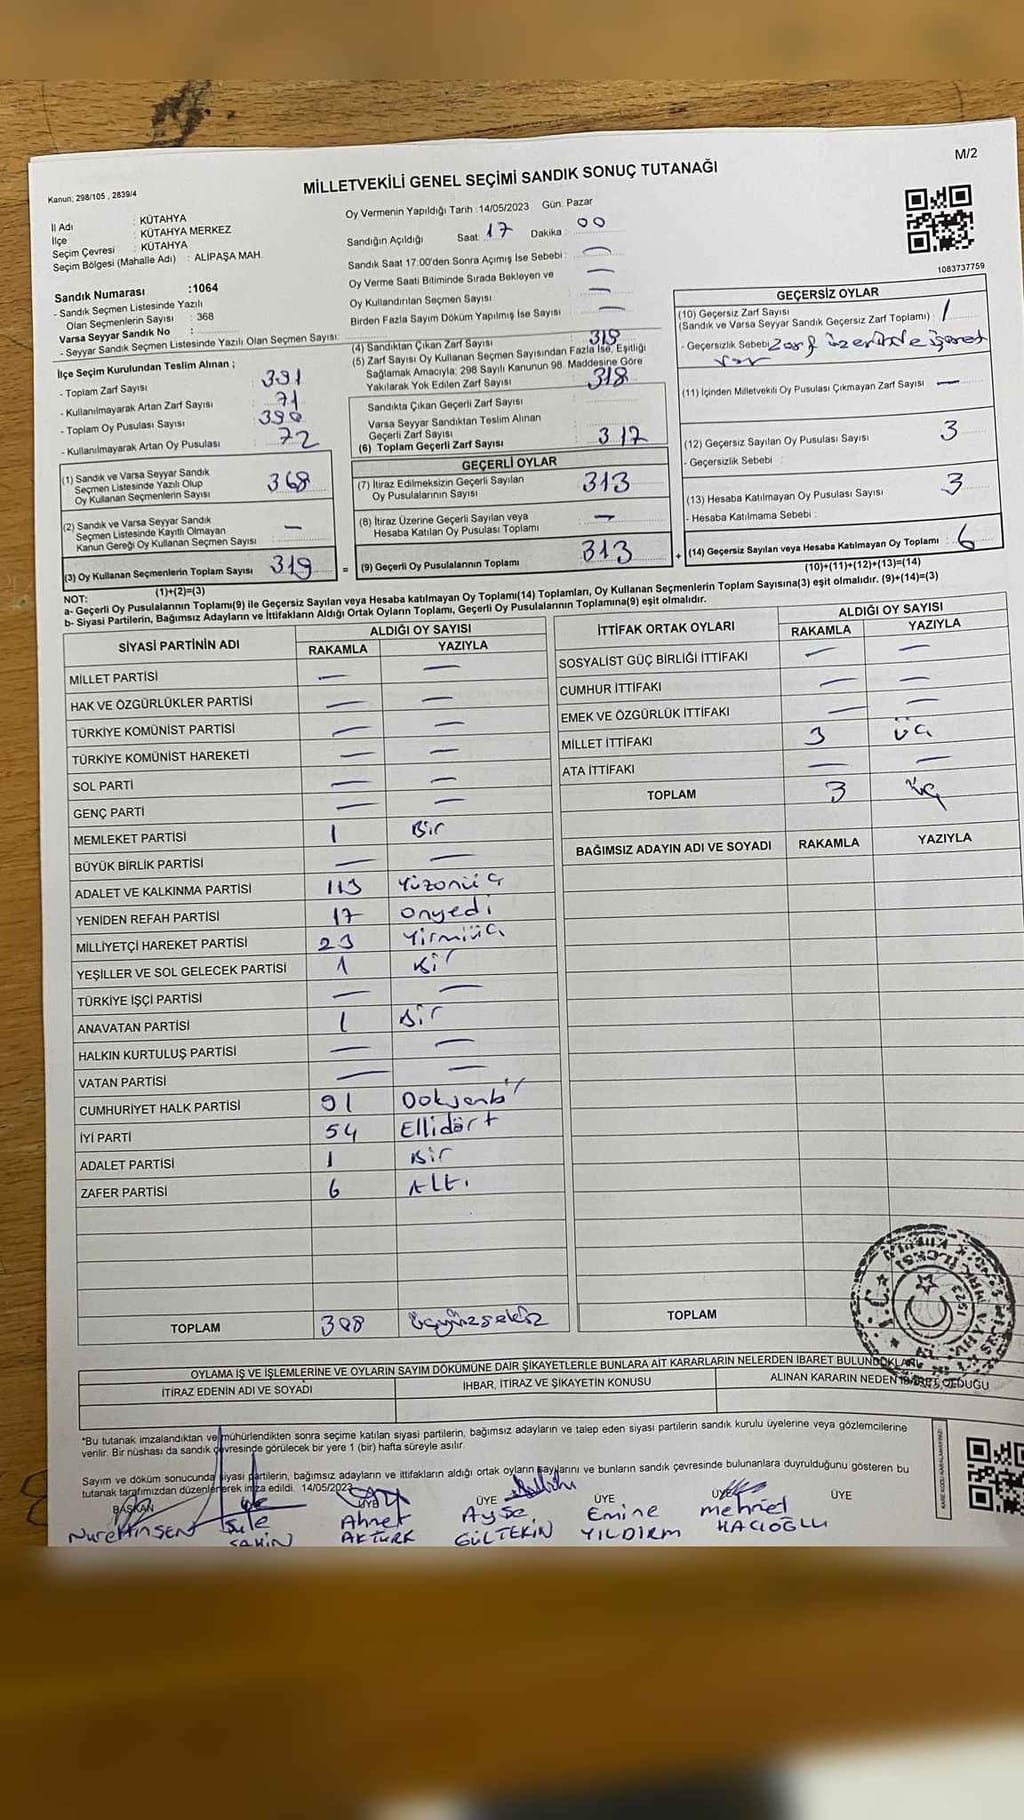 M/2
Kanun: 298/105 , 2839/4
MİLLETVEKİLİ GENEL SEÇİMİ SANDIK SONUÇ TUTANAĞI
İl Adı : KÜTAHYA
İlçe : KÜTAHYA MERKEZ
Seçim Çevresi : KÜTAHYA
Seçim Bölgesi (Mahalle Adı) : ALİPAŞA MAH.
Sandık Numarası :1064
- Sandık Seçmen Listesinde Yazılı
Olan Seçmenlerin Sayısı : 368
Varsa Seyyar Sandık No :
- Seyyar Sandık Seçmen Listesinde Yazılı Olan Seçmen Sayısı:
Oy Vermenin Yapıldığı Tarih :14/05/2023 Gün: Pazar
Sandığın Açıldığı Saat: 17 Dakika: 00
Sandık Saat 17:00'den Sonra Açımış İse Sebebi : —
Oy Verme Saati Bitiminde Sırada Bekleyen ve —
Oy Kullandırılan Seçmen Sayısı —
Birden Fazla Sayım Döküm Yapılmış İse Sayısı —
1083737759
İlçe Seçim Kurulundan Teslim Alınan ;
- Toplam Zarf Sayısı : 391
- Kullanılmayarak Artan Zarf Sayısı : 71
- Toplam Oy Pusulası Sayısı : 390
- Kullanılmayarak Artan Oy Pusulası : 72
(1) Sandık ve Varsa Seyyar Sandık
Seçmen Listesinde Yazılı Olup
Oy Kullanan Seçmenlerin Sayısı 368
(2) Sandık ve Varsa Seyyar Sandık
Seçmen Listesinde Kayıtlı Olmayan
Kanun Gereği Oy Kullanan Seçmen Sayısı —
(3) Oy Kullanan Seçmenlerin Toplam Sayısı 319
(1)+(2)=(3)
(4) Sandıktan Çıkan Zarf Sayısı 319
(5) Zarf Sayısı Oy Kullanan Seçmen Sayısından Fazla İse, Eşitliği
Sağlamak Amacıyla; 298 Sayılı Kanunun 98. Maddesine Göre
Yakılarak Yok Edilen Zarf Sayısı 318
Sandıkta Çıkan Geçerli Zarf Sayısı
Varsa Seyyar Sandıktan Teslim Alınan
Geçerli Zarf Sayısı
(6) Toplam Geçerli Zarf Sayısı : 317
GEÇERLİ OYLAR
(7) İtiraz Edilmeksizin Geçerli Sayılan
Oy Pusulalarının Sayısı 313
(8) İtiraz Üzerine Geçerli Sayılan veya
Hesaba Katılan Oy Pusulası Toplamı —
= (9) Geçerli Oy Pusulalarının Toplamı 313
GEÇERSİZ OYLAR
(10) Geçersiz Zarf Sayısı
(Sandık ve Varsa Seyyar Sandık Geçersiz Zarf Toplamı) : 1
- Geçersizlik Sebebi: Zarf üzerinde işaret
var
(11) İçinden Milletvekili Oy Pusulası Çıkmayan Zarf Sayısı —
(12) Geçersiz Sayılan Oy Pusulası Sayısı 3
- Geçersizlik Sebebi :
(13) Hesaba Katılmayan Oy Pusulası Sayısı 3
- Hesaba Katılmama Sebebi :
+ (14) Geçersiz Sayılan veya Hesaba Katılmayan Oy Toplamı : 6
(10)+(11)+(12)+(13)=(14)
NOT:
a- Geçerli Oy Pusulalarının Toplamı(9) ile Geçersiz Sayılan veya Hesaba katılmayan Oy Toplamı(14) Toplamları, Oy Kullanan Seçmenlerin Toplam Sayısına(3) eşit olmalıdır. (9)+(14)=(3)
b- Siyasi Partilerin, Bağımsız Adayların ve İttifakların Aldığı Ortak Oyların Toplamı, Geçerli Oy Pusulalarının Toplamına(9) eşit olmalıdır.
SİYASİ PARTİNİN ADI ALDIĞI OY SAYISI
RAKAMLA YAZIYLA
MİLLET PARTİSİ — —
HAK VE ÖZGÜRLÜKLER PARTİSİ — —
TÜRKİYE KOMÜNİST PARTİSİ — —
TÜRKİYE KOMÜNİST HAREKETİ — —
SOL PARTİ — —
GENÇ PARTİ — —
MEMLEKET PARTİSİ 1 Bir
BÜYÜK BİRLİK PARTİSİ — —
ADALET VE KALKINMA PARTİSİ 113 Yüzonüç
YENİDEN REFAH PARTİSİ 17 onyedi
MİLLİYETÇİ HAREKET PARTİSİ 23 Yirmiüç
YEŞİLLER VE SOL GELECEK PARTİSİ 1 Bir
TÜRKİYE İŞÇİ PARTİSİ — —
ANAVATAN PARTİSİ 1 Bir
HALKIN KURTULUŞ PARTİSİ — —
VATAN PARTİSİ — —
CUMHURİYET HALK PARTİSİ 91 Doksanbir
İYİ PARTİ 54 Ellidört
ADALET PARTİSİ 1 Bir
ZAFER PARTİSİ 6 Altı
TOPLAM 308 üçyüzsekiz
İTTİFAK ORTAK OYLARI ALDIĞI OY SAYISI
RAKAMLA YAZIYLA
SOSYALİST GÜÇ BİRLİĞİ İTTİFAKI — —
CUMHUR İTTİFAKI — —
EMEK VE ÖZGÜRLÜK İTTİFAKI — —
MİLLET İTTİFAKI 3 üç
ATA İTTİFAKI — —
TOPLAM 3 üç
BAĞIMSIZ ADAYIN ADI VE SOYADI RAKAMLA YAZIYLA
TOPLAM
OYLAMA İŞ VE İŞLEMLERİNE VE OYLARIN SAYIM DÖKÜMÜNE DAİR ŞİKAYETLERLE BUNLARA AİT KARARLARIN NELERDEN İBARET BULUNDUKLARI
İTİRAZ EDENİN ADI VE SOYADI İHBAR, İTİRAZ VE ŞİKAYETİN KONUSU ALINAN KARARIN NEDEN İBARET OLDUĞU
*Bu tutanak imzalandıktan ve mühürlendikten sonra seçime katılan siyasi partilerin, bağımsız adayların ve talep eden siyasi partilerin sandık kurulu üyelerine veya gözlemcilerine
verilir. Bir nüshası da sandık çevresinde görülecek bir yere 1 (bir) hafta süreyle asılır.
Sayım ve döküm sonucunda siyasi partilerin, bağımsız adayların ve ittifakların aldığı ortak oyların sayılarını ve bunların sandık çevresinde bulunanlara duyrulduğunu gösteren bu
tutanak tarafımızdan düzenlenerek imza edildi. 14/05/2023
BAŞKAN ÜYE ÜYE ÜYE ÜYE ÜYE ÜYE
Nurettin ŞEN Şule ŞAHİN Ahmet AKTÜRK Ayşe GÜLTEKİN Emine YILDIRIM Mehmet HACIOĞLU